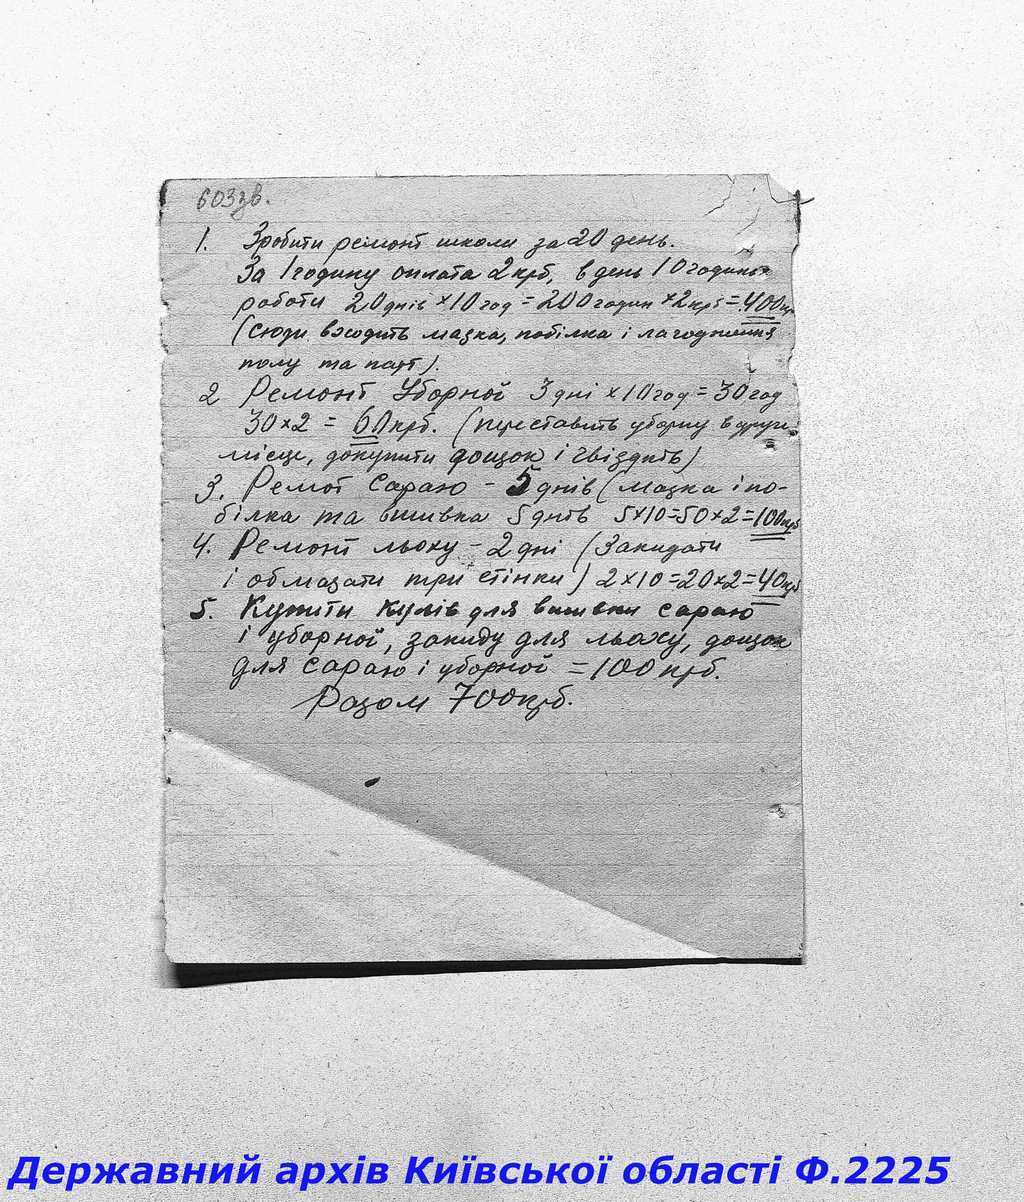 603зв.
1. Зробити ремонт школи за 20 день.
За 1 годину оплата 2 крб, в день 10 годин
работи 20 днів × 10 год = 200 годин × 2 крб = 400
(сюди входить мазка, побілка і лагодження
полу та парт).
2 Ремонт Уборной 3 дні × 10 год = 30 год
30 × 2 = 60 крб. (переставить уборну в друге
місце, докупити дощок і гвіздить)
3. Ремот Сараю - 5 днів (мазка і по-
білка та вшивка 5 днів 5×10=50×2=100крб
4. Ремонт льоху - 2 дні (Закидати
і обмазати три стінки) 2×10=20×2=40крб
5. Купити кулів для вшивки сараю
і уборної, закиду для льоху, дощок
для сараю і уборной = 100 крб.
Разом 700крб.
Державний архів Київської області Ф.2225